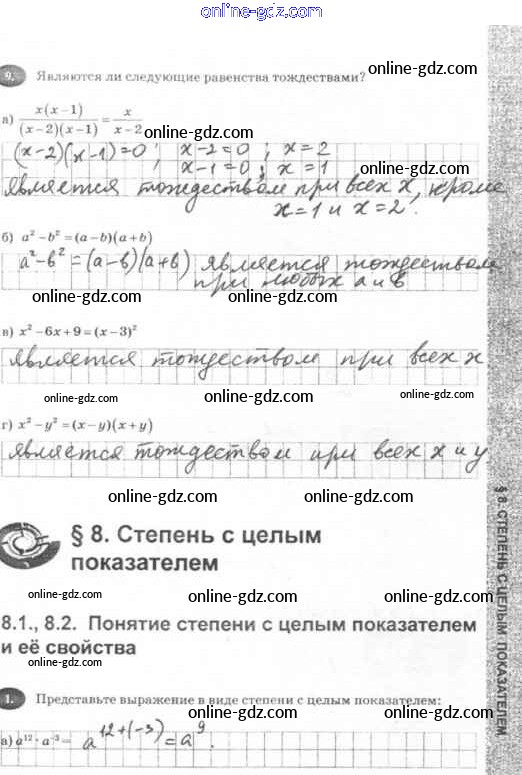 online-gdz.com
9. Являются ли следующие равенства тождествами?
online-gdz.com
а) x(x−1)/((x−2)(x−1)) = x/(x−2)
online-gdz.com
(x−2)(x−1)=0; x−2=0; x=2
x−1=0; x=1
online-gdz.com
является тождеством при всех x, кроме
x=1 и x=2.
online-gdz.com
б) a² − b² = (a−b)(a+b)
online-gdz.com
a²−b² = (a−b)(a+b) является тождеством
при любых a и b
online-gdz.com online-gdz.com
в) x² − 6x + 9 = (x−3)²
online-gdz.com
является тождеством при всех x
online-gdz.com
online-gdz.com online-gdz.com
г) x² − y² = (x−y)(x+y)
online-gdz.com
является тождеством при всех x и y
online-gdz.com
online-gdz.com online-gdz.com
§ 8. Степень с целым
показателем
online-gdz.com
online-gdz.com online-gdz.com
8.1., 8.2. Понятие степени с целым показателем
и её свойства
online-gdz.com
online-gdz.com
1. Представьте выражение в виде степени с целым показателем:
online-gdz.com online-gdz.com
а) a¹² · a⁻³ = a¹²⁺⁽⁻³⁾ = a⁹.
online-gdz.com
online-gdz.com
§ 8. СТЕПЕНЬ С ЦЕЛЫМ ПОКАЗАТЕЛЕМ